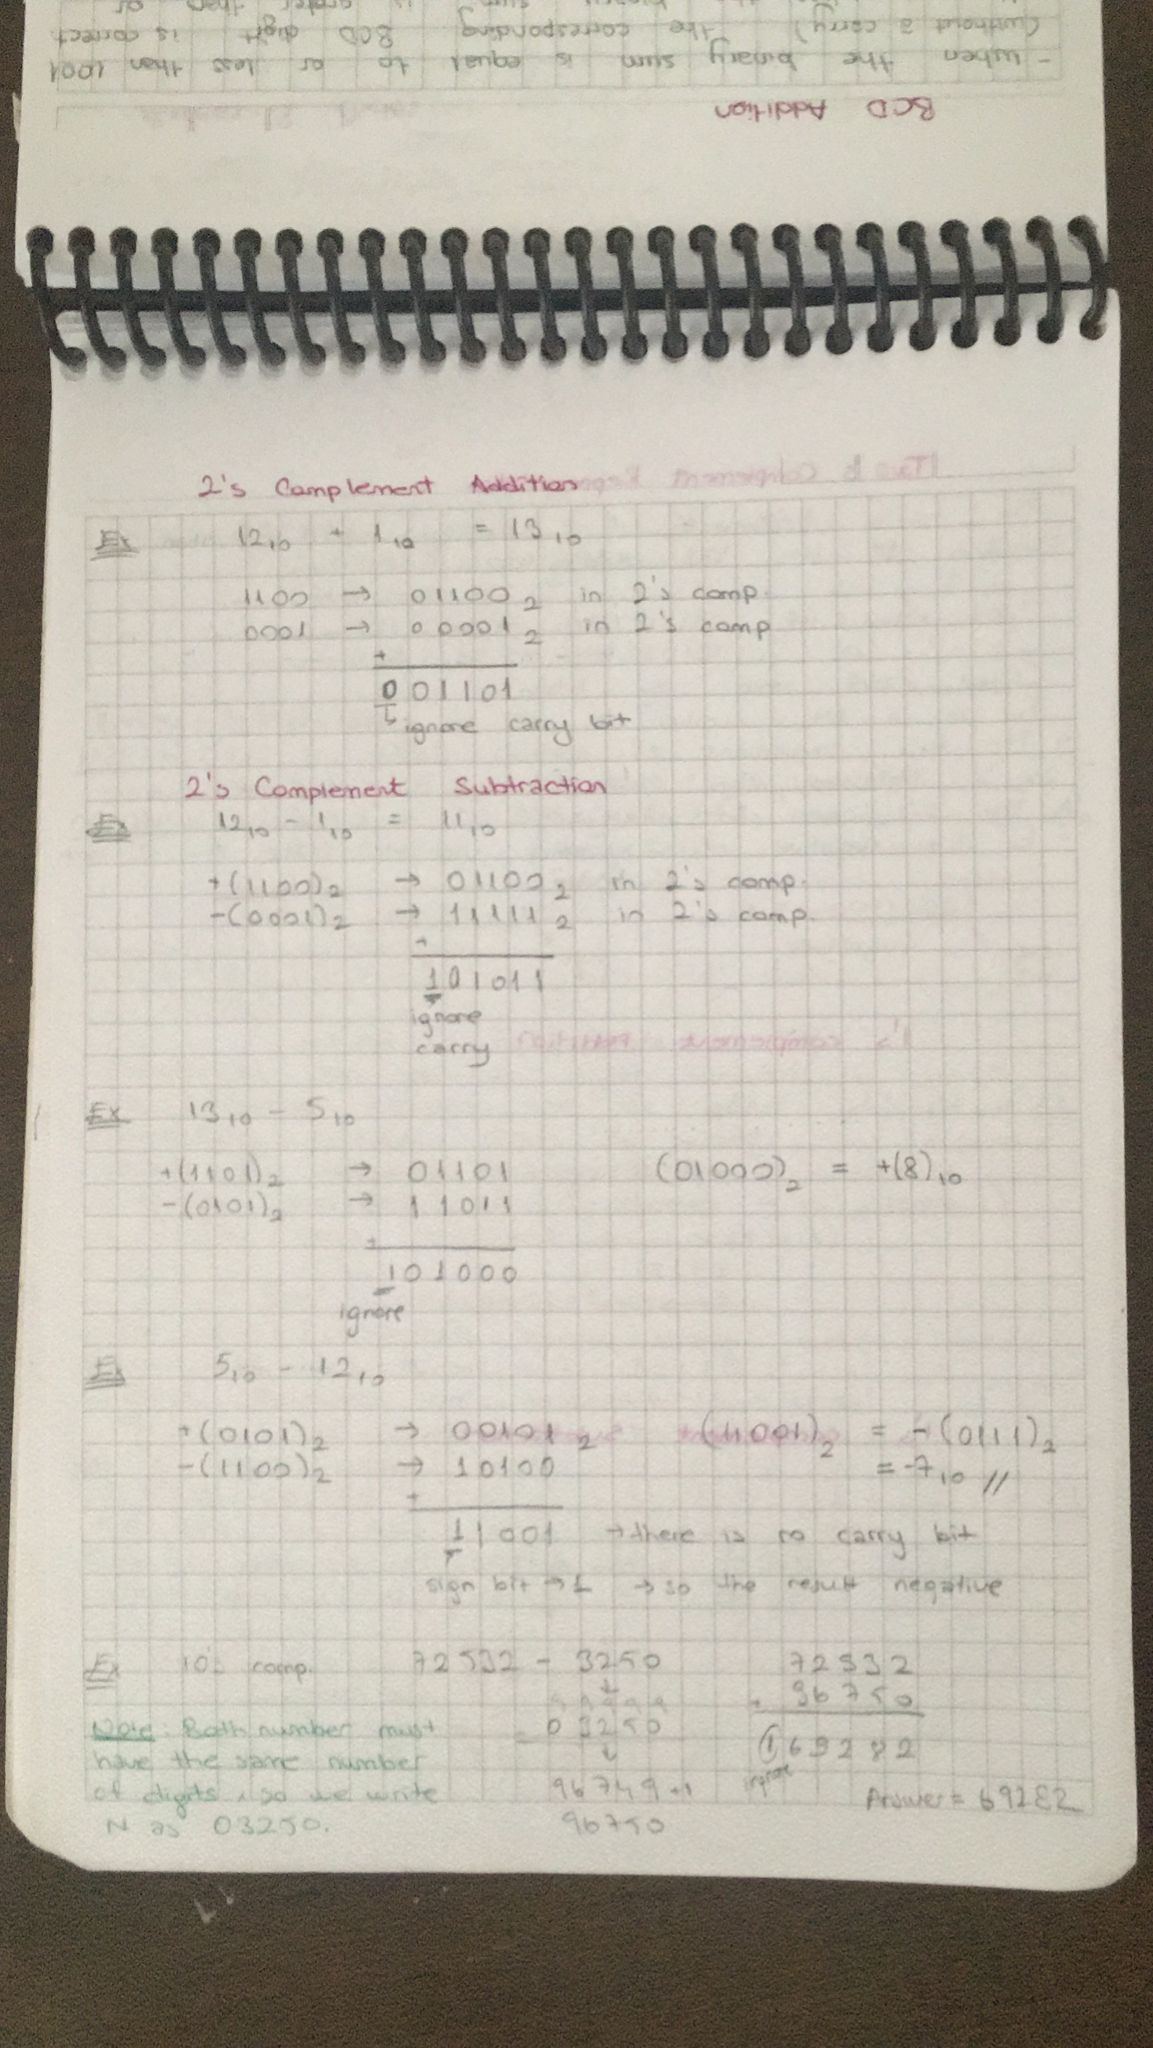 BCD Addition
- When the binary sum is equal to or less than 1001
(without a carry) the corresponding BCD digit is correct
2's Complement Addition
Ex 12₁₀ + 1₁₀ = 13₁₀
1100 → 01100₂ in 2's comp.
0001 → 00001₂ in 2's comp
+
001101
↳ ignore carry bit
2's Complement Subtraction
Ex 12₁₀ - 1₁₀ = 11₁₀
+(1100)₂ → 01100₂ in 2's comp.
-(0001)₂ → 11111₂ in 2's comp.
+
101011
ignore
carry
Ex 13₁₀ - 5₁₀
+(1101)₂ → 01101 (01000)₂ = +(8)₁₀
-(0101)₂ → 11011
+
101000
ignore
Ex 5₁₀ - 12₁₀
+(0101)₂ → 00101₂ (11001)₂ = -(0111)₂
-(1100)₂ → 10100 = -7₁₀ //
+
11001 → there is no carry bit
sign bit → 1 → so the result negative
Ex 10's comp. 72532 - 3250 72532
+ 96750
- 03250
① 69282
ignore
96749 + 1 Answer = 69282
96750
Note: Both number must
have the same number
of digits, so we write
N as 03250.